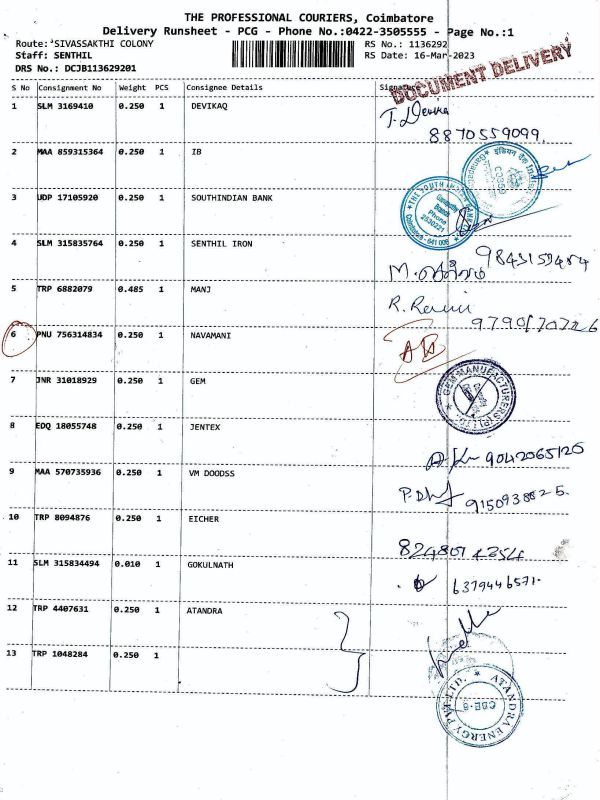 THE PROFESSIONAL COURIERS, Coimbatore
Delivery Runsheet - PCG - Phone No.:0422-3505555 - Page No.:1
Route: SIVASSAKTHI COLONY RS No.: 1136292
Staff: SENTHIL RS Date: 16-Mar-2023
DRS No.: DCJB113629201
DOCUMENT DELIVERY
S No Consignment No Weight PCS Consignee Details Signature
1 SLM 3169410 0.250 1 DEVIKAQ T. Devika
8870559099
2 MAA 859315364 0.250 1 IB
3 UDP 17105920 0.250 1 SOUTHINDIAN BANK
THE SOUTH INDIAN BANK
Ganapathy
Branch
Phone
2530221
Coimbatore - 641 006
4 SLM 315835764 0.250 1 SENTHIL IRON
9843159484
5 TRP 6882079 0.485 1 MANJ R. Ravi
9790170726
6 PNU 756314834 0.250 1 NAVAMANI
7 JNR 31018929 0.250 1 GEM
GEM MANUFACTURERS (P) LTD.
8 EDQ 18055748 0.250 1 JENTEX
9042065120
9 MAA 570735936 0.250 1 VM DOODSS
9150938825
10 TRP 8094876 0.250 1 EICHER
8248014354
11 SLM 315834494 0.010 1 GOKULNATH
6379446571
12 TRP 4407631 0.250 1 ATANDRA
13 TRP 1048284 0.250 1
ATANDRA ENERGY PVT. LTD.
CBE-6